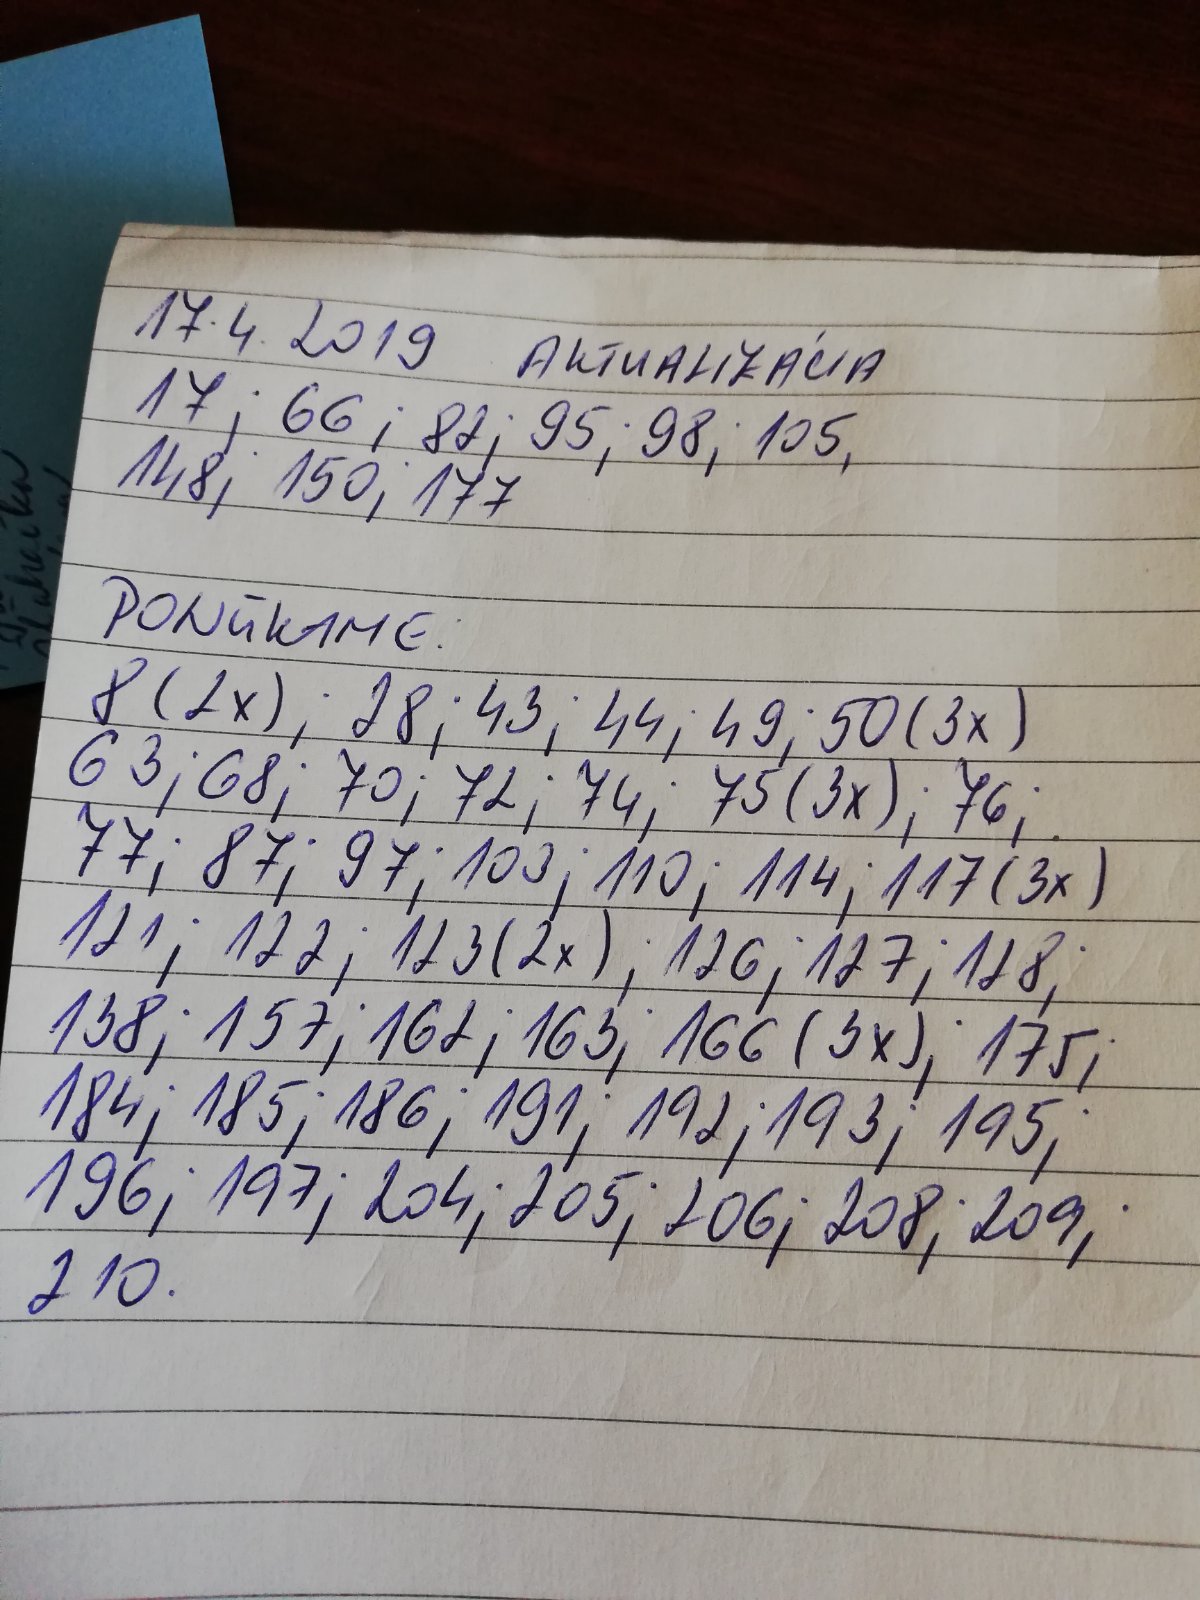 17.4.2019 AKTUALIZÁCIA
17; 66; 82; 95; 98; 105,
148; 150; 177
PONÚKAME:
8(2x); 28; 43; 44; 49; 50(3x)
63; 68; 70; 72; 74; 75(3x); 76;
77; 87; 97; 103; 110; 114; 117(3x)
121; 122; 123(2x); 126; 127; 128;
138; 157; 162; 163; 166(3x); 175;
184; 185; 186; 191; 192; 193; 195;
196; 197; 204; 205; 206; 208; 209;
210.